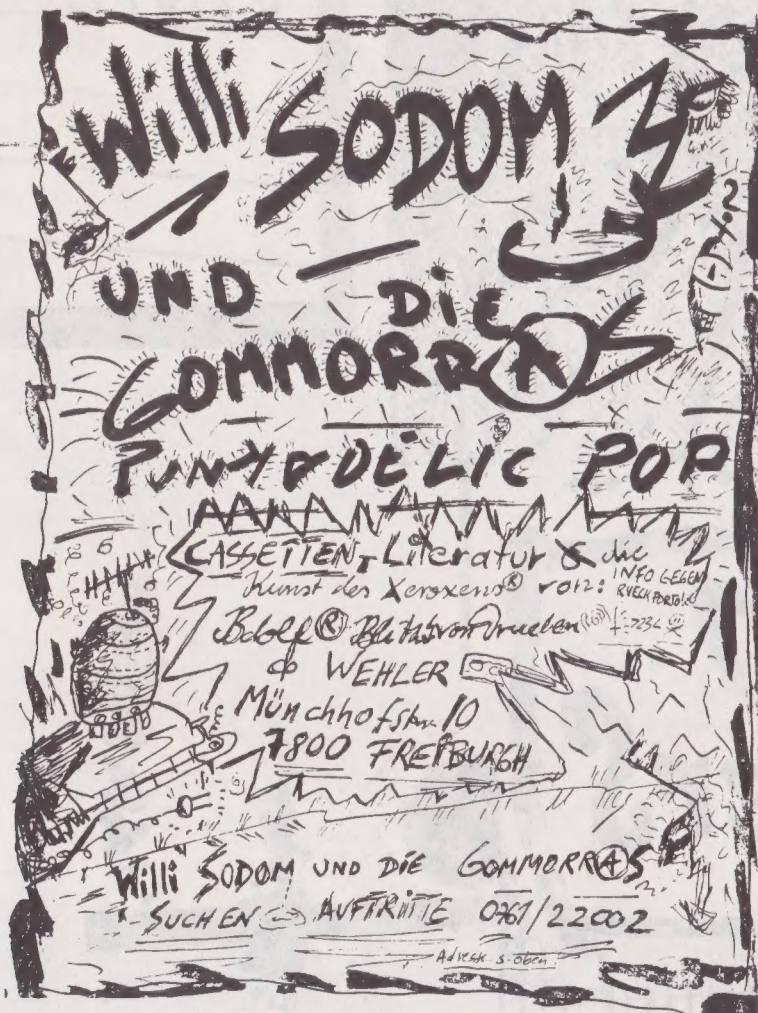 Willi SODOM
UND DIE
GOMMORRAS
PUNKADELIC POP
CASSETTEN, Literatur & die
Kunst des Xeroxens® von: INFO GEGEN
RUECKPORTO
WEHLER
Münchhofstr. 10
7800 FREIBURGH
Willi SODOM UND DIE GOMMORRAS
SUCHEN AUFTRITTE 0761/22002
Adresse s. oben